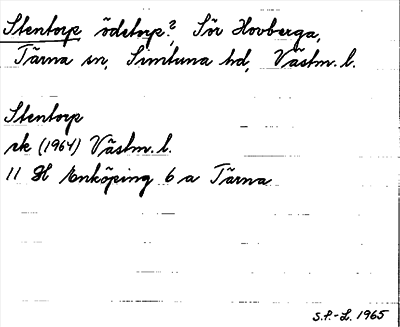 Stentorp ödetorp?, Sör Hovberga,
Tärna sn, Simtuna hd, Västm. l.
Stentorp
ek (1964) Västm. l.
11 H Enköping 6 a Tärna
S.P.-L. 1965